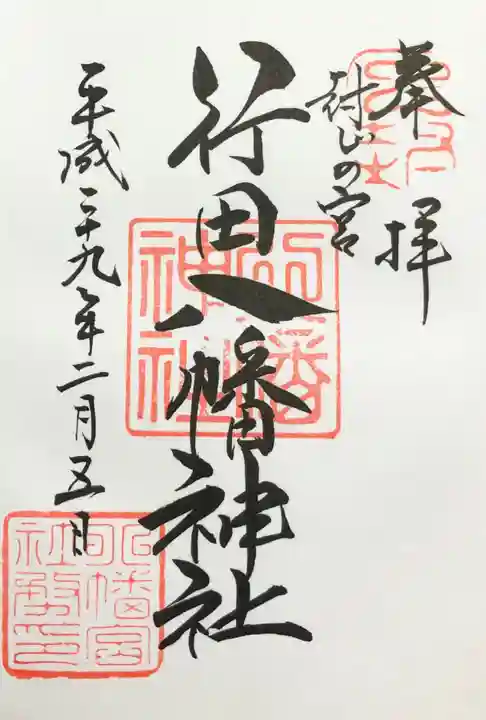 奉拝
封じの宮
行田八幡神社
平成二十九年二月五日
八幡神社
八幡宮社務印